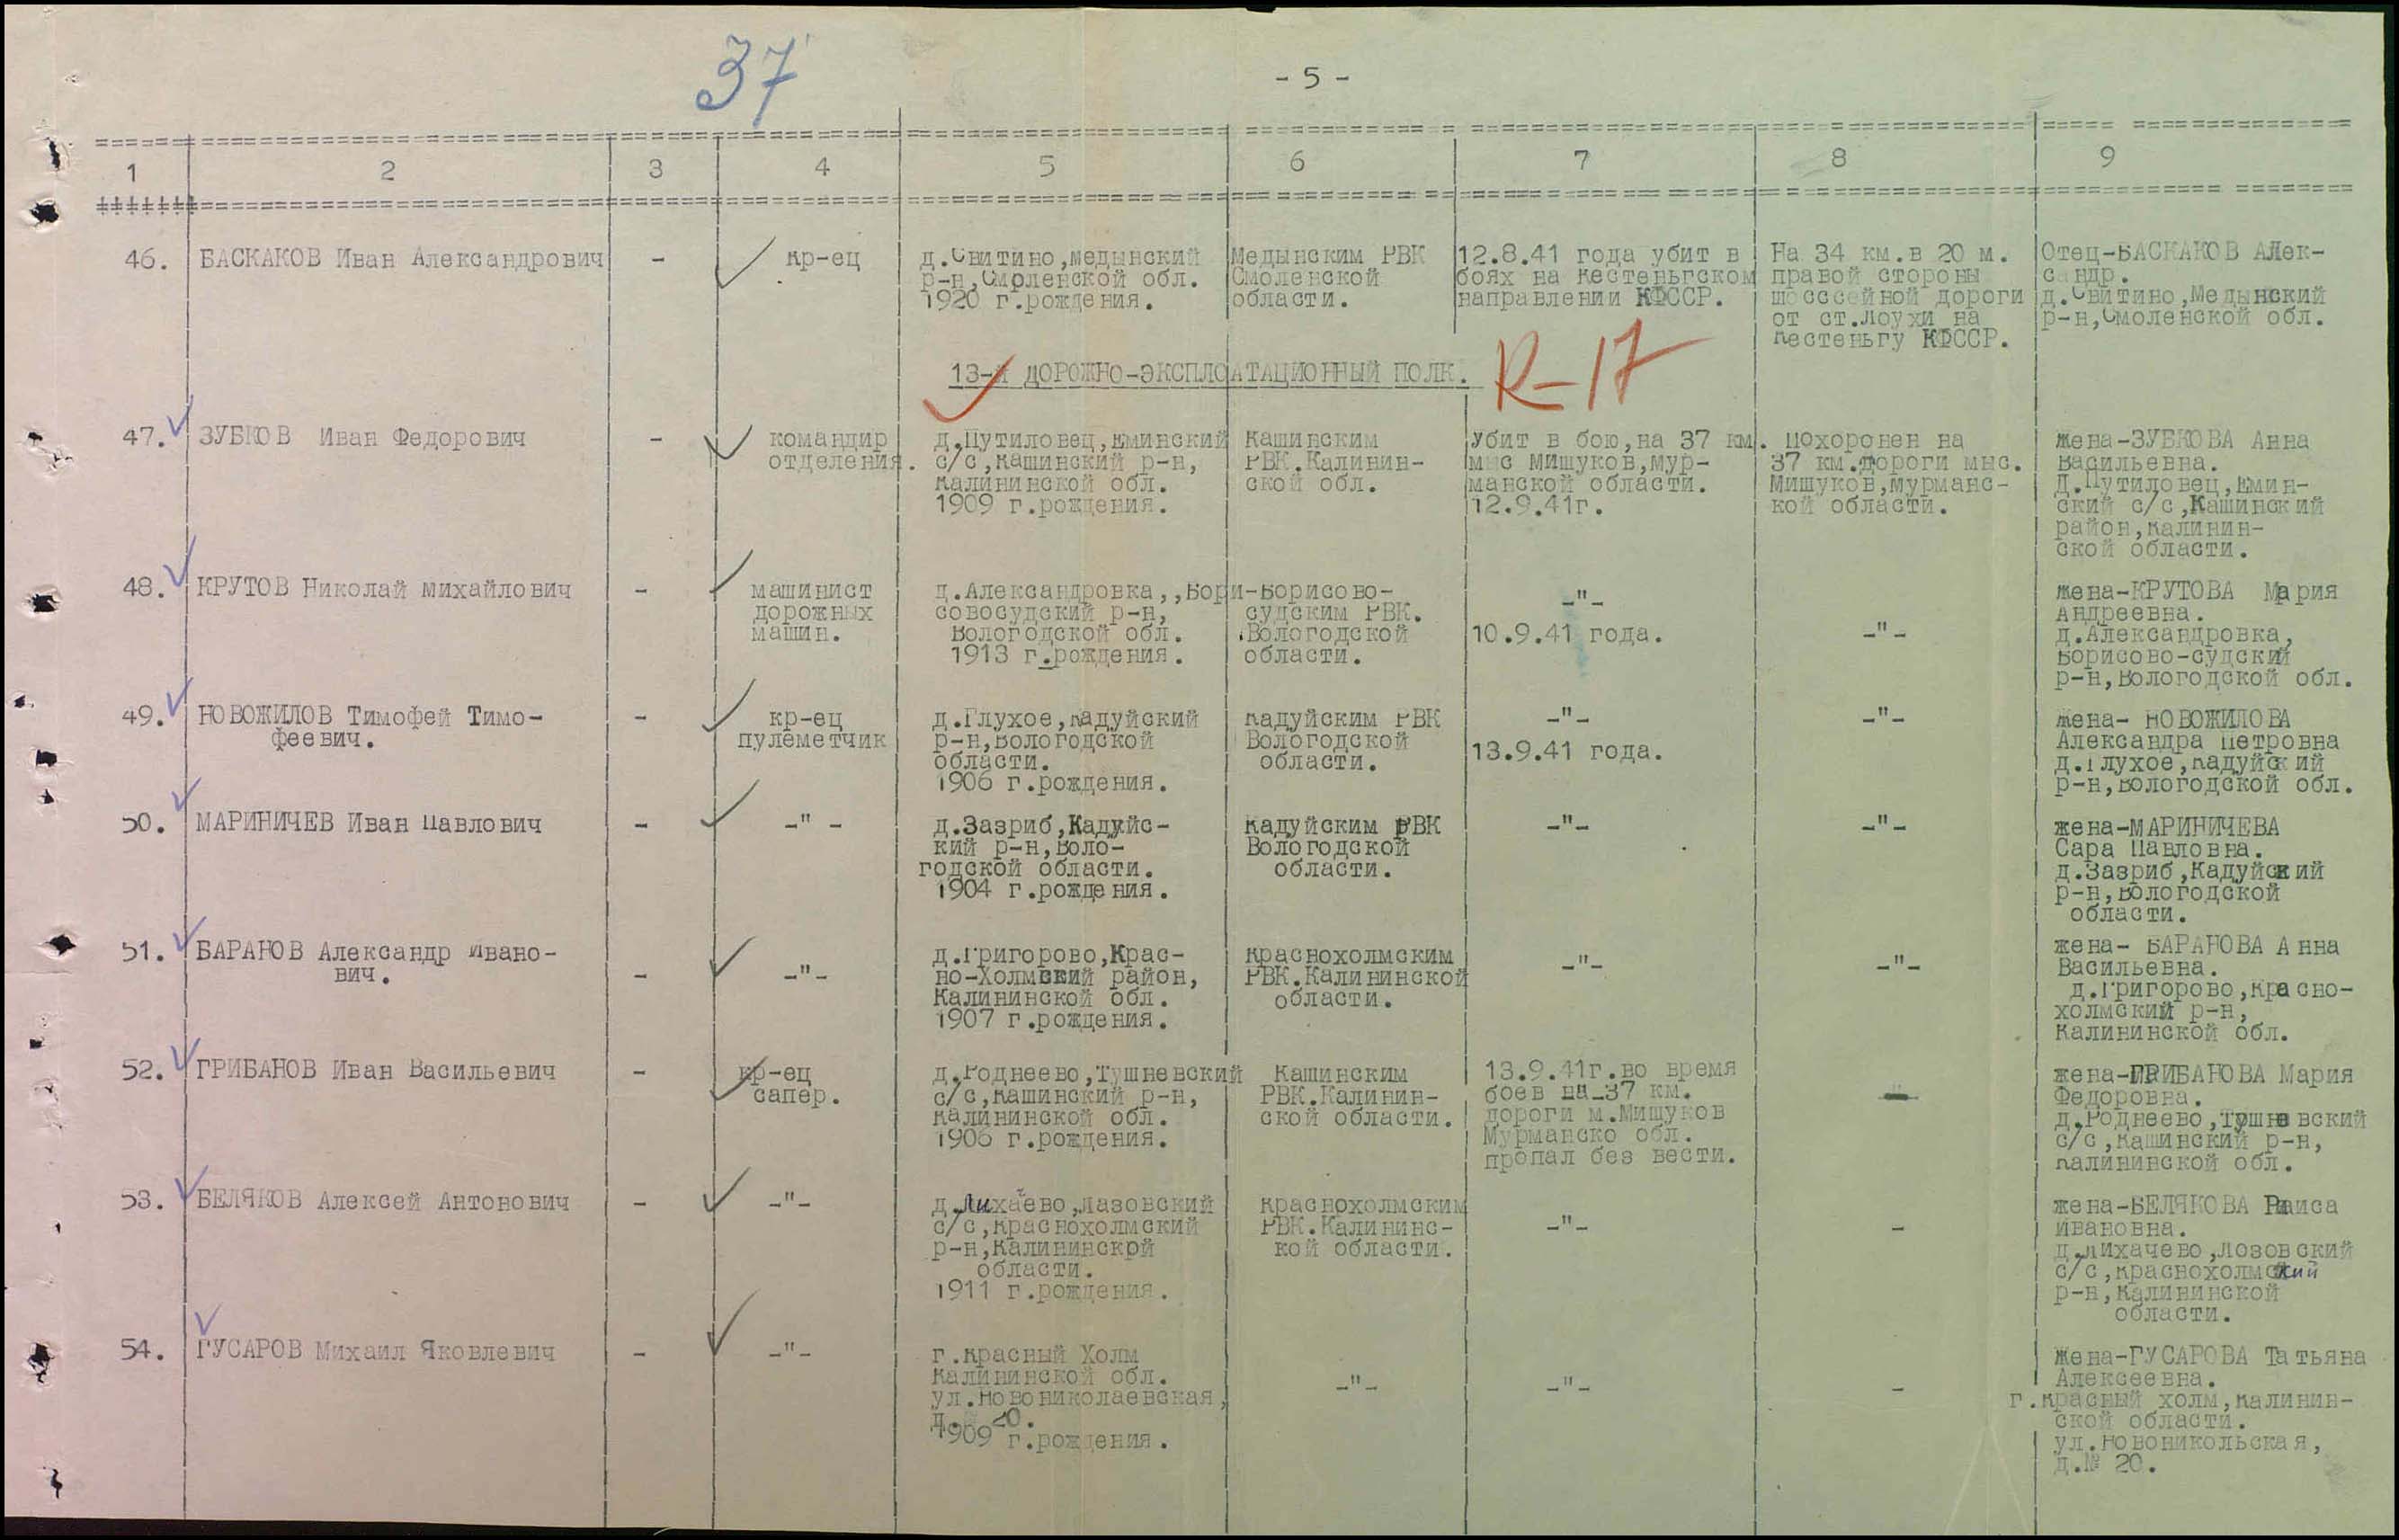 37
- 5 -
1 2 3 4 5 6 7 8 9
46. БАСКАКОВ Иван Александрович - кр-ец
д.Свитино,Медынский
р-н,Смоленской обл.
1920 г.рождения.
Медынским РВК
Смоленской
области.
12.8.41 года убит в
боях на Кестеньгском
направлении КФССР.
На 34 км.в 20 м.
правой стороны
шосссейной дороги
от ст.Лоухи на
Кестеньгу КФССР.
Отец-БАСКАКОВ Алек-
сандр.
д.Свитино,Медынский
р-н,Смоленской обл.
13-й ДОРОЖНО-ЭКСПЛОАТАЦИОННЫЙ ПОЛК.
R-17
47. ЗУБКОВ Иван Федорович -
командир
отделения.
д.Путиловец,Еминский
с/с,Кашинский р-н,
Калининской обл.
1909 г.рождения.
Кашинским
РВК.Калинин-
ской обл.
Убит в бою,на 37 км.
мыс Мишуков,Мур-
манской области.
12.9.41г.
Похоронен на
37 км.дороги мыс.
Мишуков,Мурманс-
кой области.
Жена-ЗУБКОВА Анна
Васильевна.
Д.Путиловец,Емин-
ский с/с,Кашинский
район,Калинин-
ской области.
48. КРУТОВ Николай Михайлович -
машинист
дорожных
машин.
д.Александровка,,Бори-
совосудский р-н,
Вологодской обл.
1913 г.рождения.
Борисово-
судским РВК.
Вологодской
области.
-"-
10.9.41 года.
-"-
Жена-КРУТОВА Мария
Андреевна.
д.Александровка,
Борисово-судский
р-н,Вологодской обл.
49. НОВОЖИЛОВ Тимофей Тимо-
феевич.
-
кр-ец
пулеметчик
д.Глухое,Кадуйский
р-н,Вологодской
области.
1906 г.рождения.
Кадуйским РВК
Вологодской
области.
-"-
13.9.41 года.
-"-
Жена- НОВОЖИЛОВА
Александра Петровна
д.Глухое,Кадуйский
р-н,Вологодской обл.
50. МАРИНИЧЕВ Иван Павлович - -" -
д.Зазриб,Кадуйс-
кий р-н,Воло-
годской области.
1904 г.рождения.
Кадуйским РВК
Вологодской
области.
-"-
-"-
жена-МАРИНИЧЕВА
Сара Павловна.
д.Зазриб,Кадуйский
р-н,Вологодской
области.
51. БАРАНОВ Александр Ивано-
вич.
- -"-
д.Григорово,Крас-
но-Холмский район,
Калининской обл.
1907 г.рождения.
Краснохолмским
РВК.Калининской
области.
-"-
-"-
жена- БАРАНОВА Анна
Васильевна.
д.Григорово,Красно-
холмский р-н,
Калининской обл.
52. ГРИБАНОВ Иван Васильевич -
кр-ец
сапер.
д.Роднеево,Тушневский
с/с,Кашинский р-н,
Калининской обл.
1905 г.рождения.
Кашинским
РВК.Калинин-
ской области.
13.9.41г.во время
боев на 37 км.
дороги м.Мишуков
Мурманско обл.
пропал без вести.
-
жена-ГРИБАНОВА Мария
Федоровна.
д.Роднеево,Тушневский
с/с,Кашинский р-н,
Калининской обл.
53. БЕЛЯКОВ Алексей Антонович - -"-
д.Лихаево,Лазовский
с/с,Краснохолмский
р-н,Калининской
области.
1911 г.рождения.
Краснохолмским
РВК.Калининс-
кой области.
-"-
-
жена-БЕЛЯКОВА Раиса
Ивановна.
д.Лихачево,Лозовский
с/с,Краснохолмский
р-н,Калининской
области.
54. ГУСАРОВ Михаил Яковлевич - -"-
г.Красный Холм
Калининской обл.
ул.Новониколаевская,
д.№ 20.
1909 г.рождения.
-"-
-"-
-
Жена-ГУСАРОВА Татьяна
Алексеевна.
г.Красный холм,Калинин-
ской области.
ул.Новоникольская,
д.№ 20.